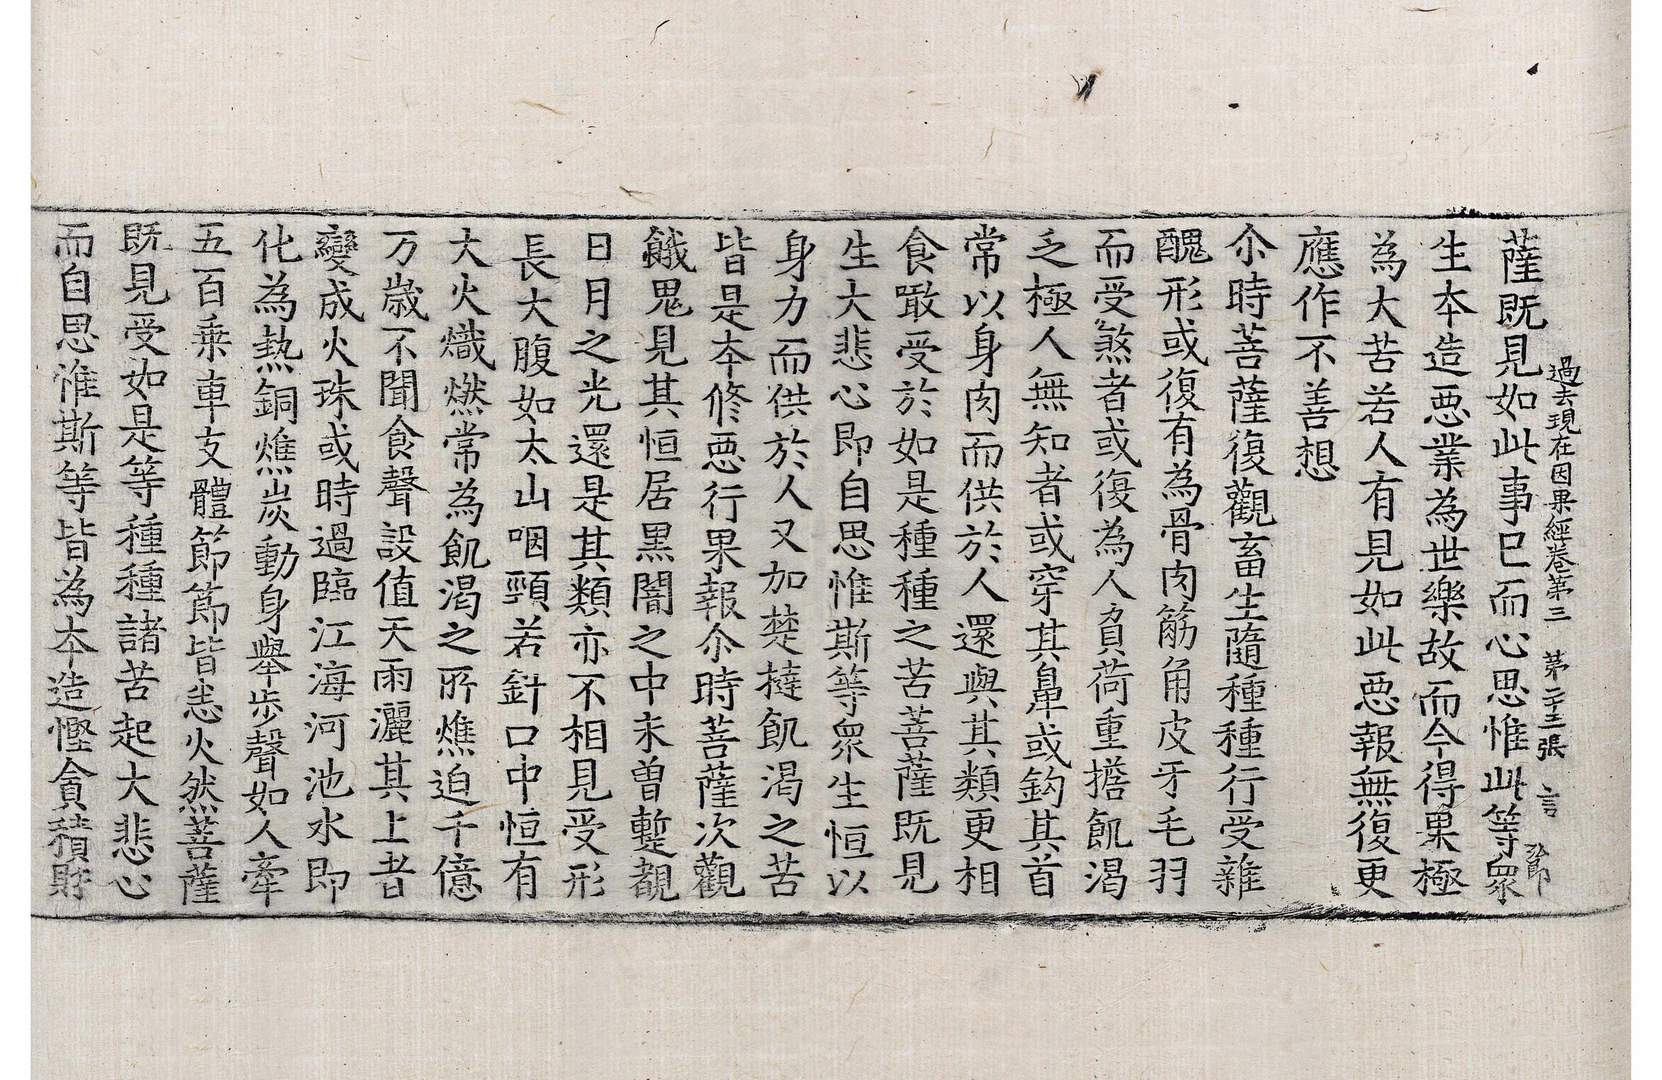 過去現在因果經卷第三 第二十三張 言
薩既見如此事已而心思惟此等衆
生本造惡業為世樂故而今得果極
為大苦若人有見如此惡報無復更
應作不善想
尒時菩薩復觀畜生隨種種行受雜
醜形或復有為骨肉筋角皮牙毛羽
而受煞者或復為人負荷重擔飢渴
乏極人無知者或穿其鼻或鈎其首
常以身肉而供於人還與其類更相
食噉受於如是種種之苦菩薩既見
生大悲心即自思惟斯等衆生恒以
身力而供於人又加楚撻飢渴之苦
皆是本修惡行果報尒時菩薩次觀
餓鬼見其恒居黑闇之中未曾蹔覩
日月之光還是其類亦不相見受形
長大腹如太山咽頸若針口中恒有
大火熾燃常為飢渴之所燋迫千億
万歲不聞食聲設值天雨灑其上者
變成火珠或時過臨江海河池水即
化為熱銅燋炭動身舉步聲如人牽
五百乗車支體節節皆恙火然菩薩
既見受如是等種種諸苦起大悲心
而自思惟斯等皆為本造慳貪積財